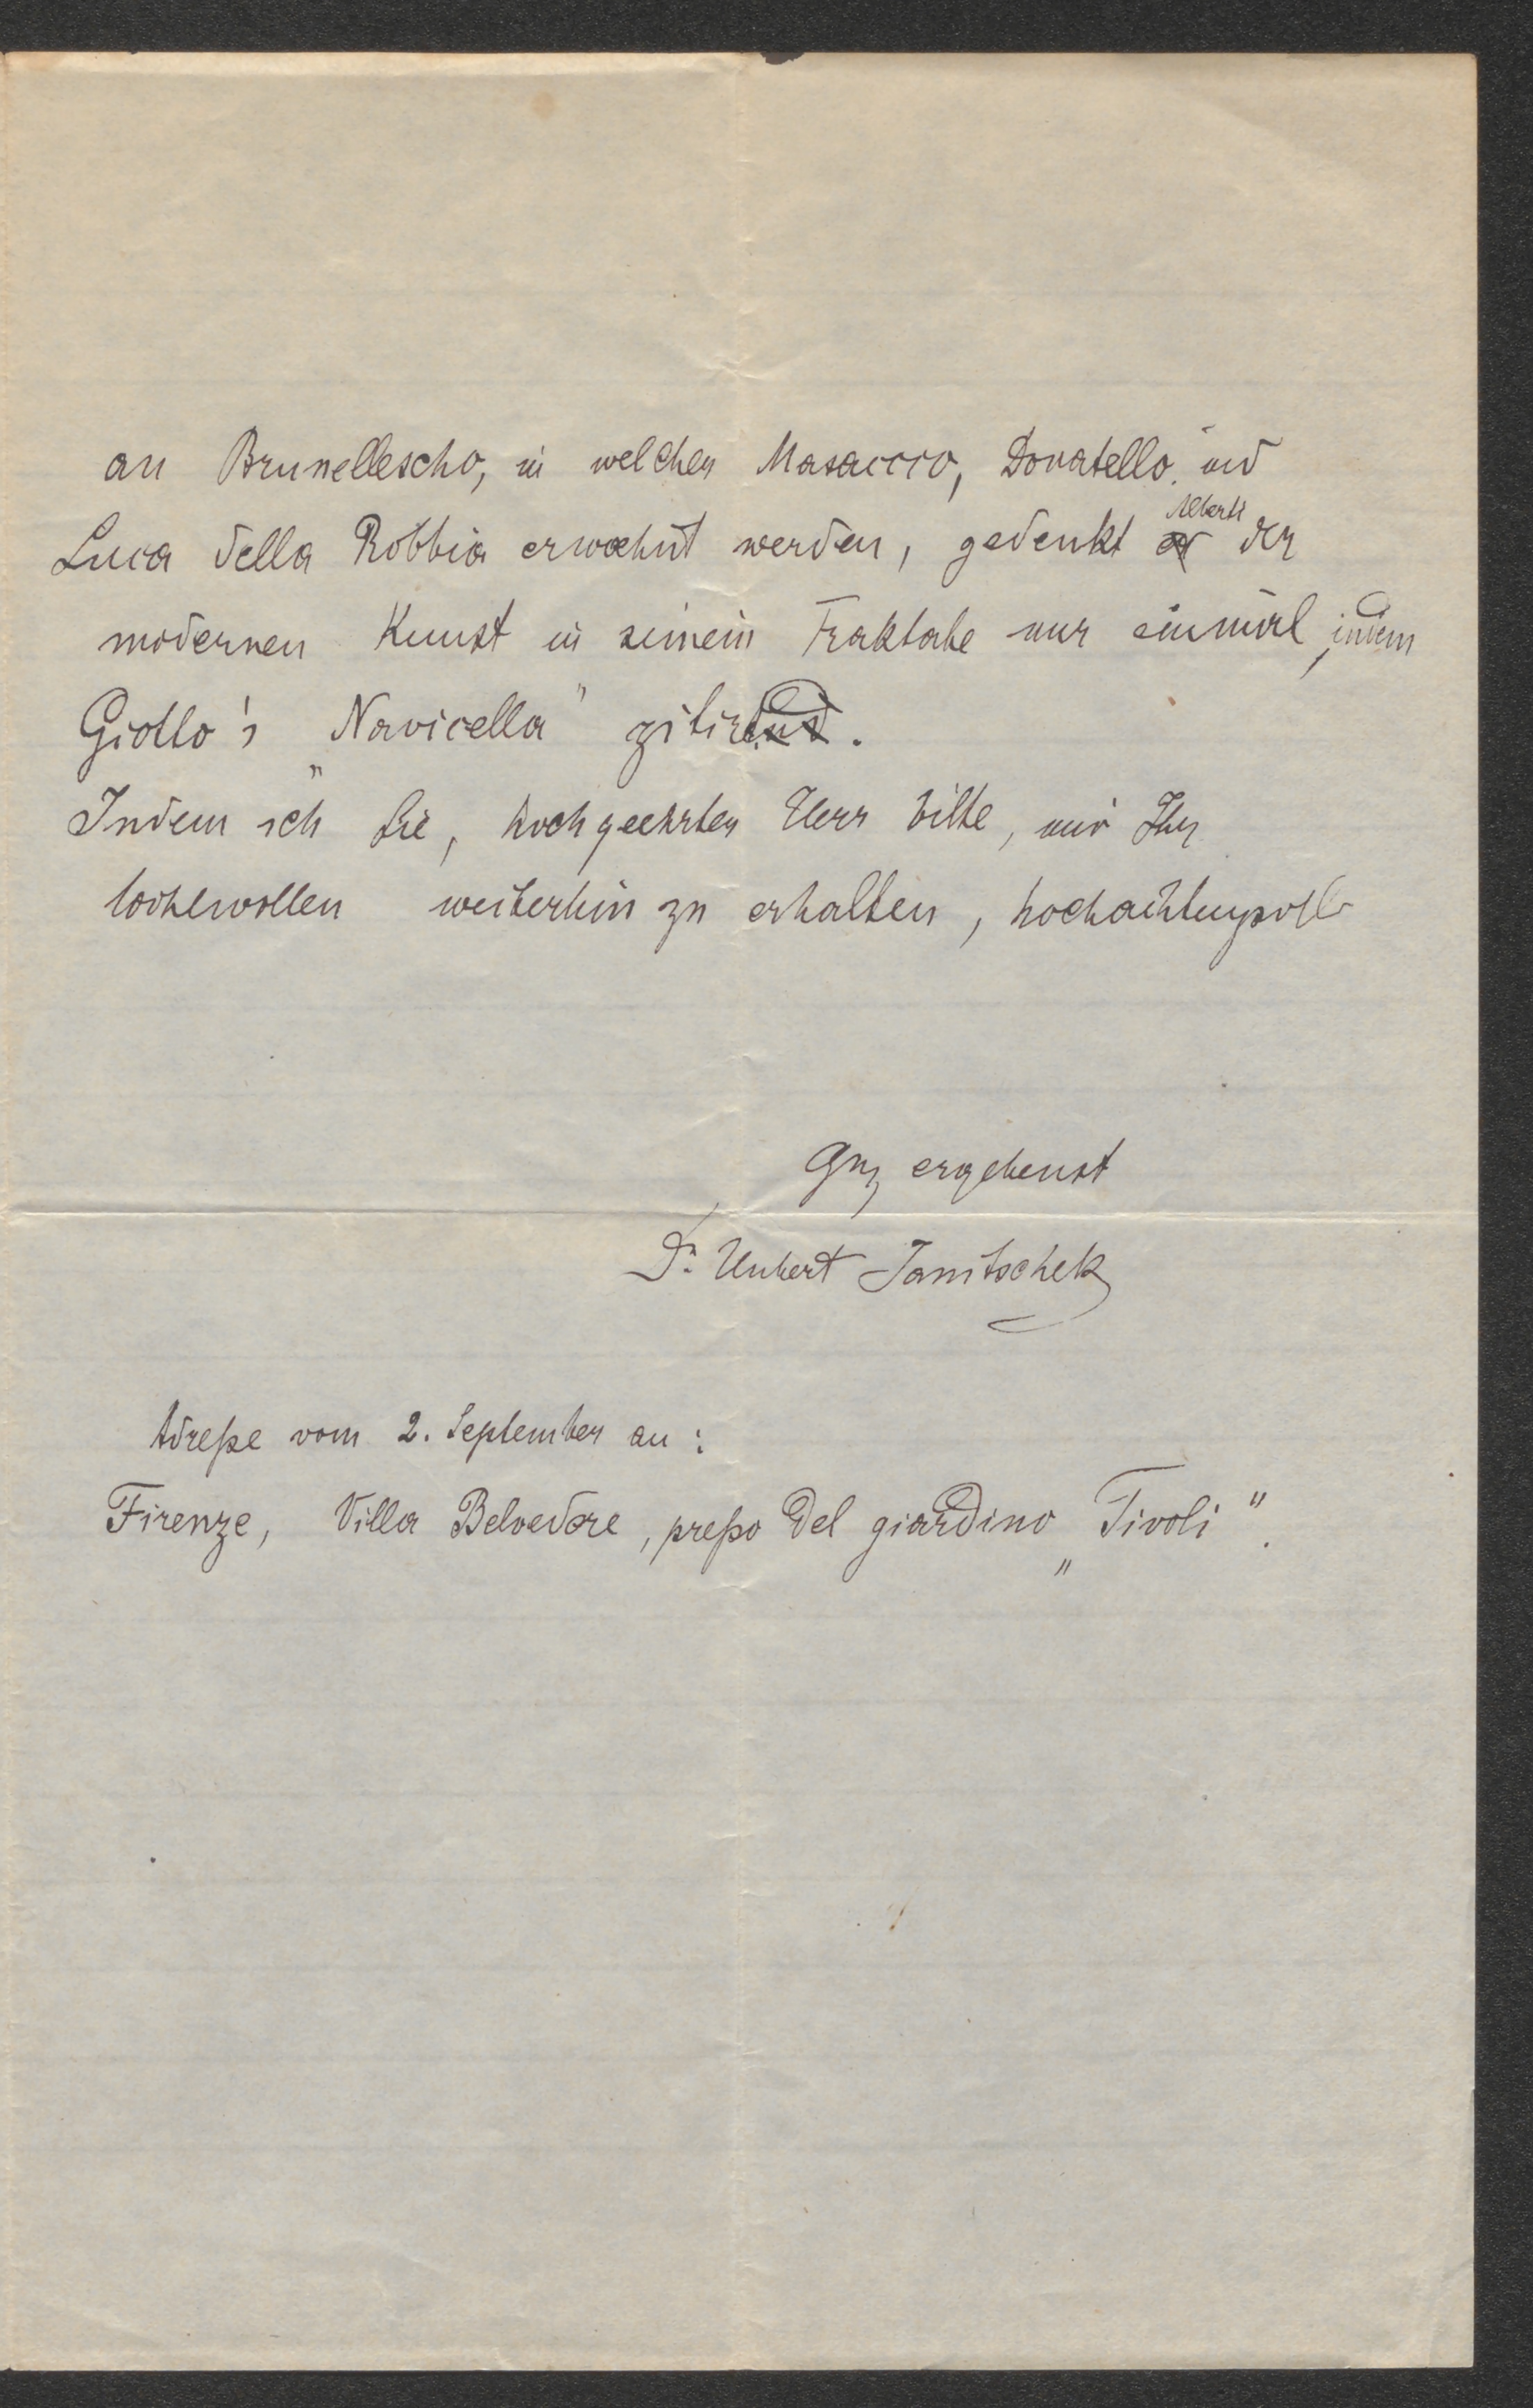 an Brunellescho, in welcher Masaccio, Donatello und
Luca della Robbia erwaehnt werden, gedenkt Alberti der
modernen Kunst in seinem Traktate nur einmal, indem
Giotto's „Navicella" zitirt.
Indem ich Sie, hochgeehrter Herr bitte, mir Ihr
Wohlwollen weiterhin zu erhalten, hochachtungsvoll
Gnz ergebenst
Dr. Hubert Janitschek
Adreße vom 2. September an:
Firenze, Villa Belvedere, preßo del giardino „Tivoli".